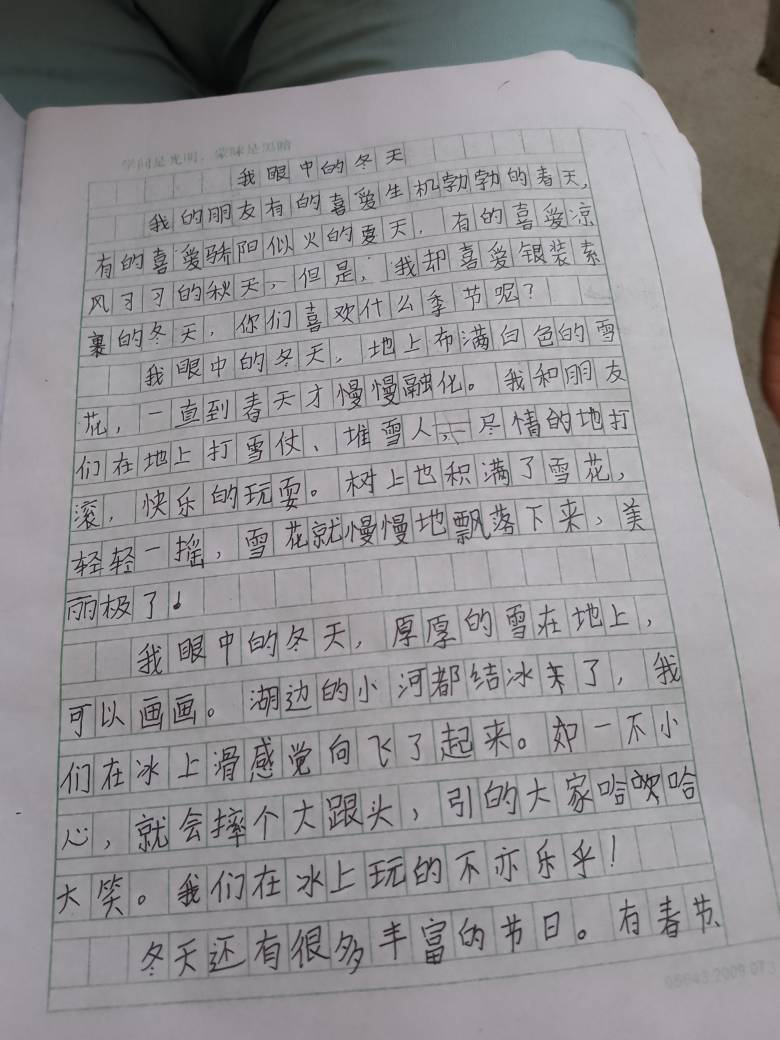 学问是光明，蒙昧是黑暗
我眼中的冬天
我的朋友有的喜爱生机勃勃的春天，
有的喜爱骄阳似火的夏天，有的喜爱凉
风习习的秋天，但是，我却喜爱银装素
裹的冬天，你们喜欢什么季节呢？
我眼中的冬天，地上布满白色的雪
花，一直到春天才慢慢融化。我和朋友
们在地上打雪仗、堆雪人，尽情的地打
滚，快乐的玩耍。树上也积满了雪花，
轻轻一摇，雪花就慢慢地飘落下来，美
丽极了！
我眼中的冬天，厚厚的雪在地上，
可以画画。湖边的小河都结冰了，我
们在冰上滑感觉向飞了起来。如一不小
心，就会摔个大跟头，引的大家哈哈
大笑。我们在冰上玩的不亦乐乎！
冬天还有很多丰富的节日。有春节、
05643.2009.07.3